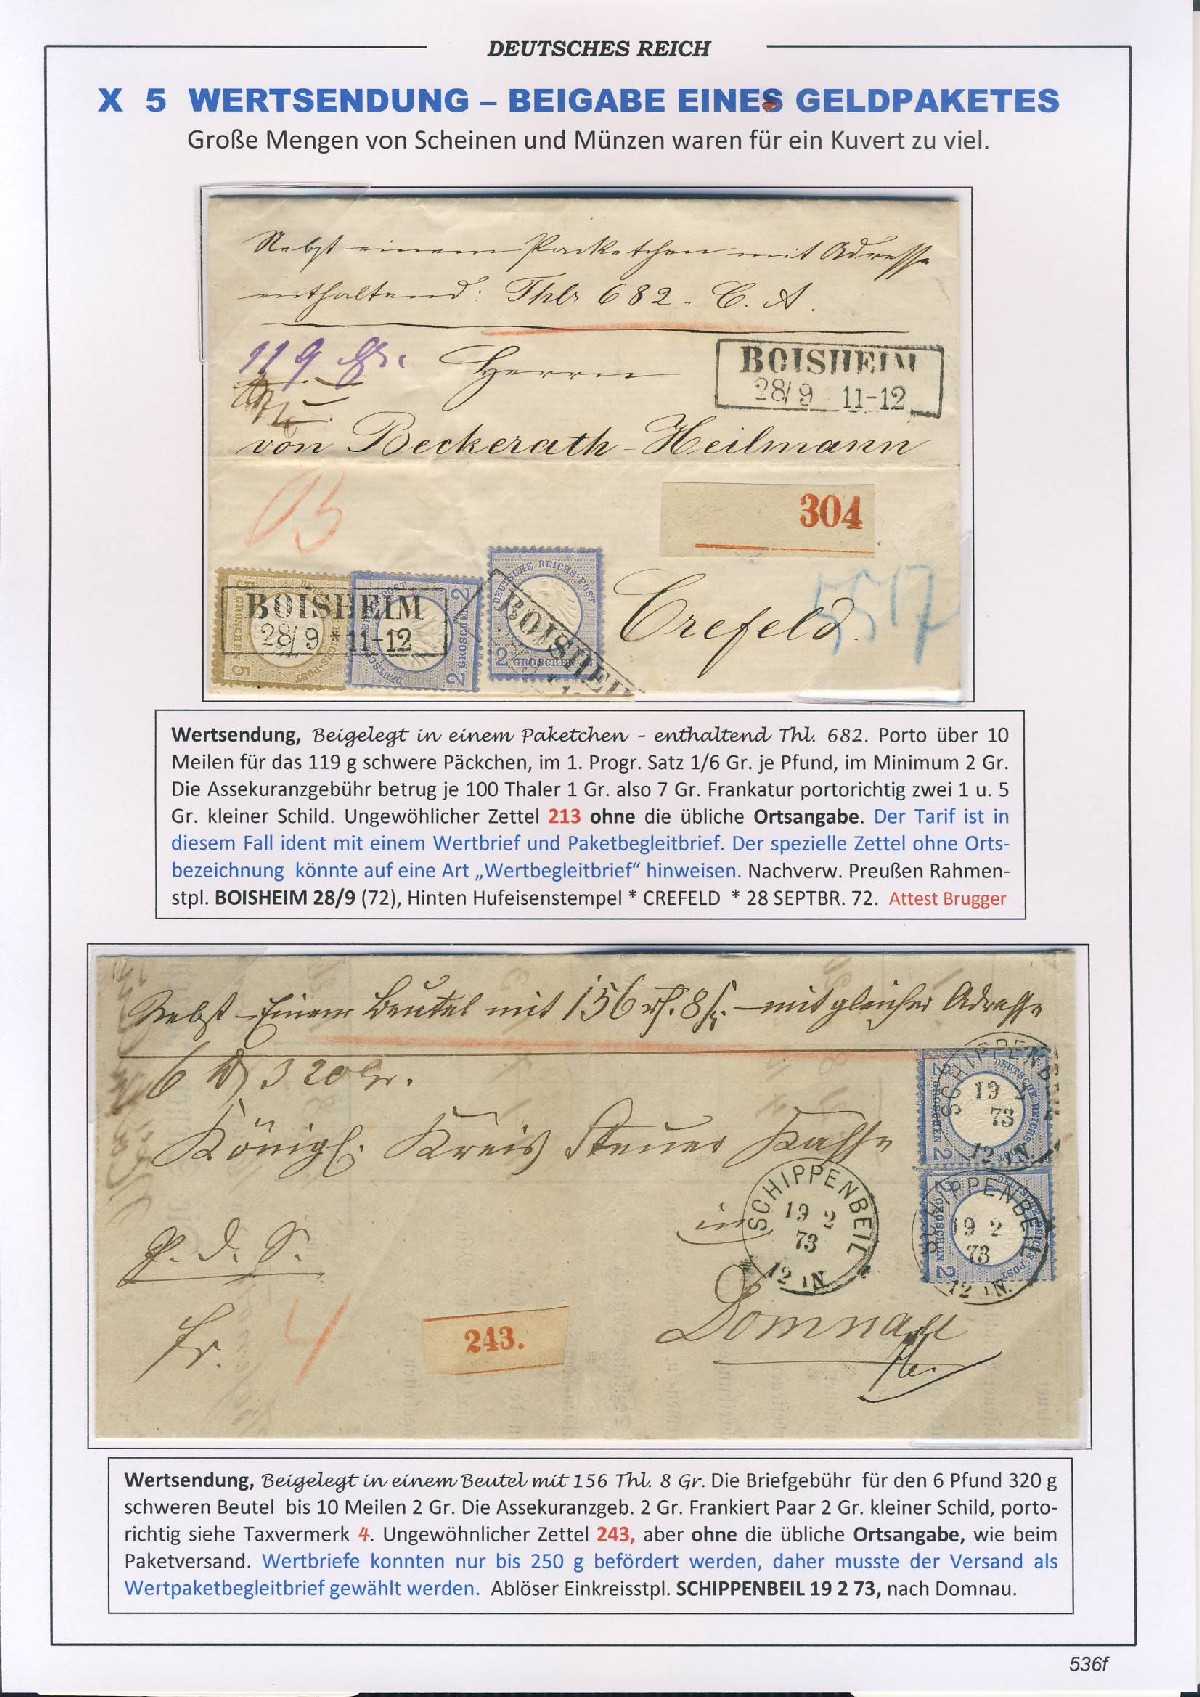 DEUTSCHES REICH
X 5 WERTSENDUNG – BEIGABE EINES GELDPAKETES
Große Mengen von Scheinen und Münzen waren für ein Kuvert zu viel.
Nebst einem Packetchen mit Adresse
enthaltend: Thlr 682 - C. A.
119 Gr.
Herrn
BOISHEIM
28/9 11-12
von Beckerath-Heilmann
304
BOISHEIM
28/9 * 11-12
BOISHEIM
DEUTSCHE REICHS-POST
2 GROSCHEN
Crefeld.
Wertsendung, Beigelegt in einem Paketchen - enthaltend Thl. 682. Porto über 10
Meilen für das 119 g schwere Päckchen, im 1. Progr. Satz 1/6 Gr. je Pfund, im Minimum 2 Gr.
Die Assekuranzgebühr betrug je 100 Thaler 1 Gr. also 7 Gr. Frankatur portorichtig zwei 1 u. 5
Gr. kleiner Schild. Ungewöhlicher Zettel 213 ohne die übliche Ortsangabe. Der Tarif ist in
diesem Fall ident mit einem Wertbrief und Paketbegleitbrief. Der spezielle Zettel ohne Orts-
bezeichnung könnte auf eine Art „Wertbegleitbrief“ hinweisen. Nachverw. Preußen Rahmen-
stpl. BOISHEIM 28/9 (72), Hinten Hufeisenstempel * CREFELD * 28 SEPTBR. 72. Attest Brugger
Nebst Einem Beutel mit 156 rh. 8 f. mit gleicher Adresse
6 320 Gr.
Königl. Kreis Steuer Kasse
in
SCHIPPENBEIL
19 2
73
12 1N.
SCHIPPENBEIL
19 2
73
12 1N.
SCHIPPENBEIL
19 2
73
12 1N.
P. d. S.
fr. 4
243.
Domnau
Wertsendung, Beigelegt in einem Beutel mit 156 Thl. 8 Gr. Die Briefgebühr für den 6 Pfund 320 g
schweren Beutel bis 10 Meilen 2 Gr. Die Assekuranzgeb. 2 Gr. Frankiert Paar 2 Gr. kleiner Schild, porto-
richtig siehe Taxvermerk 4. Ungewöhnlicher Zettel 243, aber ohne die übliche Ortsangabe, wie beim
Paketversand. Wertbriefe konnten nur bis 250 g befördert werden, daher musste der Versand als
Wertpaketbegleitbrief gewählt werden. Ablöser Einkreisstpl. SCHIPPENBEIL 19 2 73, nach Domnau.
536f